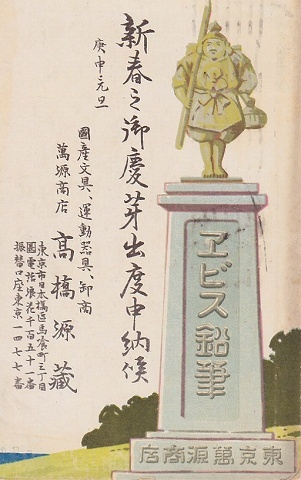 新春之御慶芽出度申納候
庚申元旦
國産文具、運動器具、卸商
萬源商店
高橋源藏
東京市日本橋區馬喰町三丁目
電話浪花千百五十一番
振替口座東京一四七七番
ヱビス鉛筆
東京萬源商店